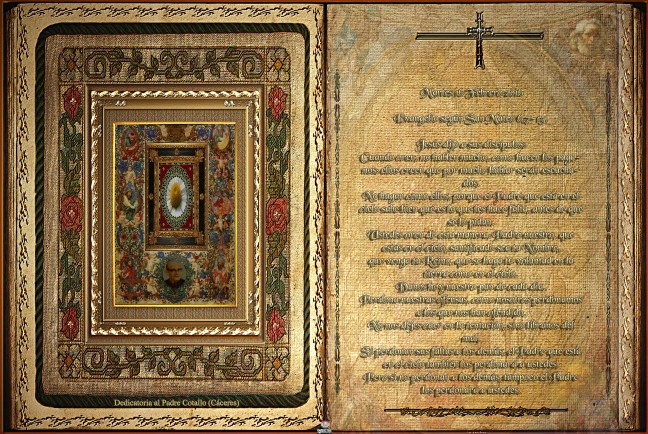 Dedicatoria al Padre Cotallo (Cáceres)
Martes Febrero
Evangelio según San Mateo 6,7-15.
Jesús dijo a sus discípulos:
Cuando oren, no hablen mucho, como hacen los paga-
nos: ellos creen que por mucho hablar serán escucha-
dos.
No hagan como ellos, porque el Padre que está en el
cielo sabe bien qué es lo que les hace falta, antes de que
se lo pidan.
Ustedes oren de esta manera: Padre nuestro, que
estás en el cielo, santificado sea tu Nombre,
que venga tu Reino, que se haga tu voluntad en la
tierra como en el cielo.
Danos hoy nuestro pan de cada día.
Perdona nuestras ofensas, como nosotros perdonamos
a los que nos han ofendido.
No nos dejes caer en la tentación, sino líbranos del
mal.
Si perdonan sus faltas a los demás, el Padre que está
en el cielo también los perdonará a ustedes.
Pero si no perdonan a los demás, tampoco el Padre
los perdonará a ustedes.